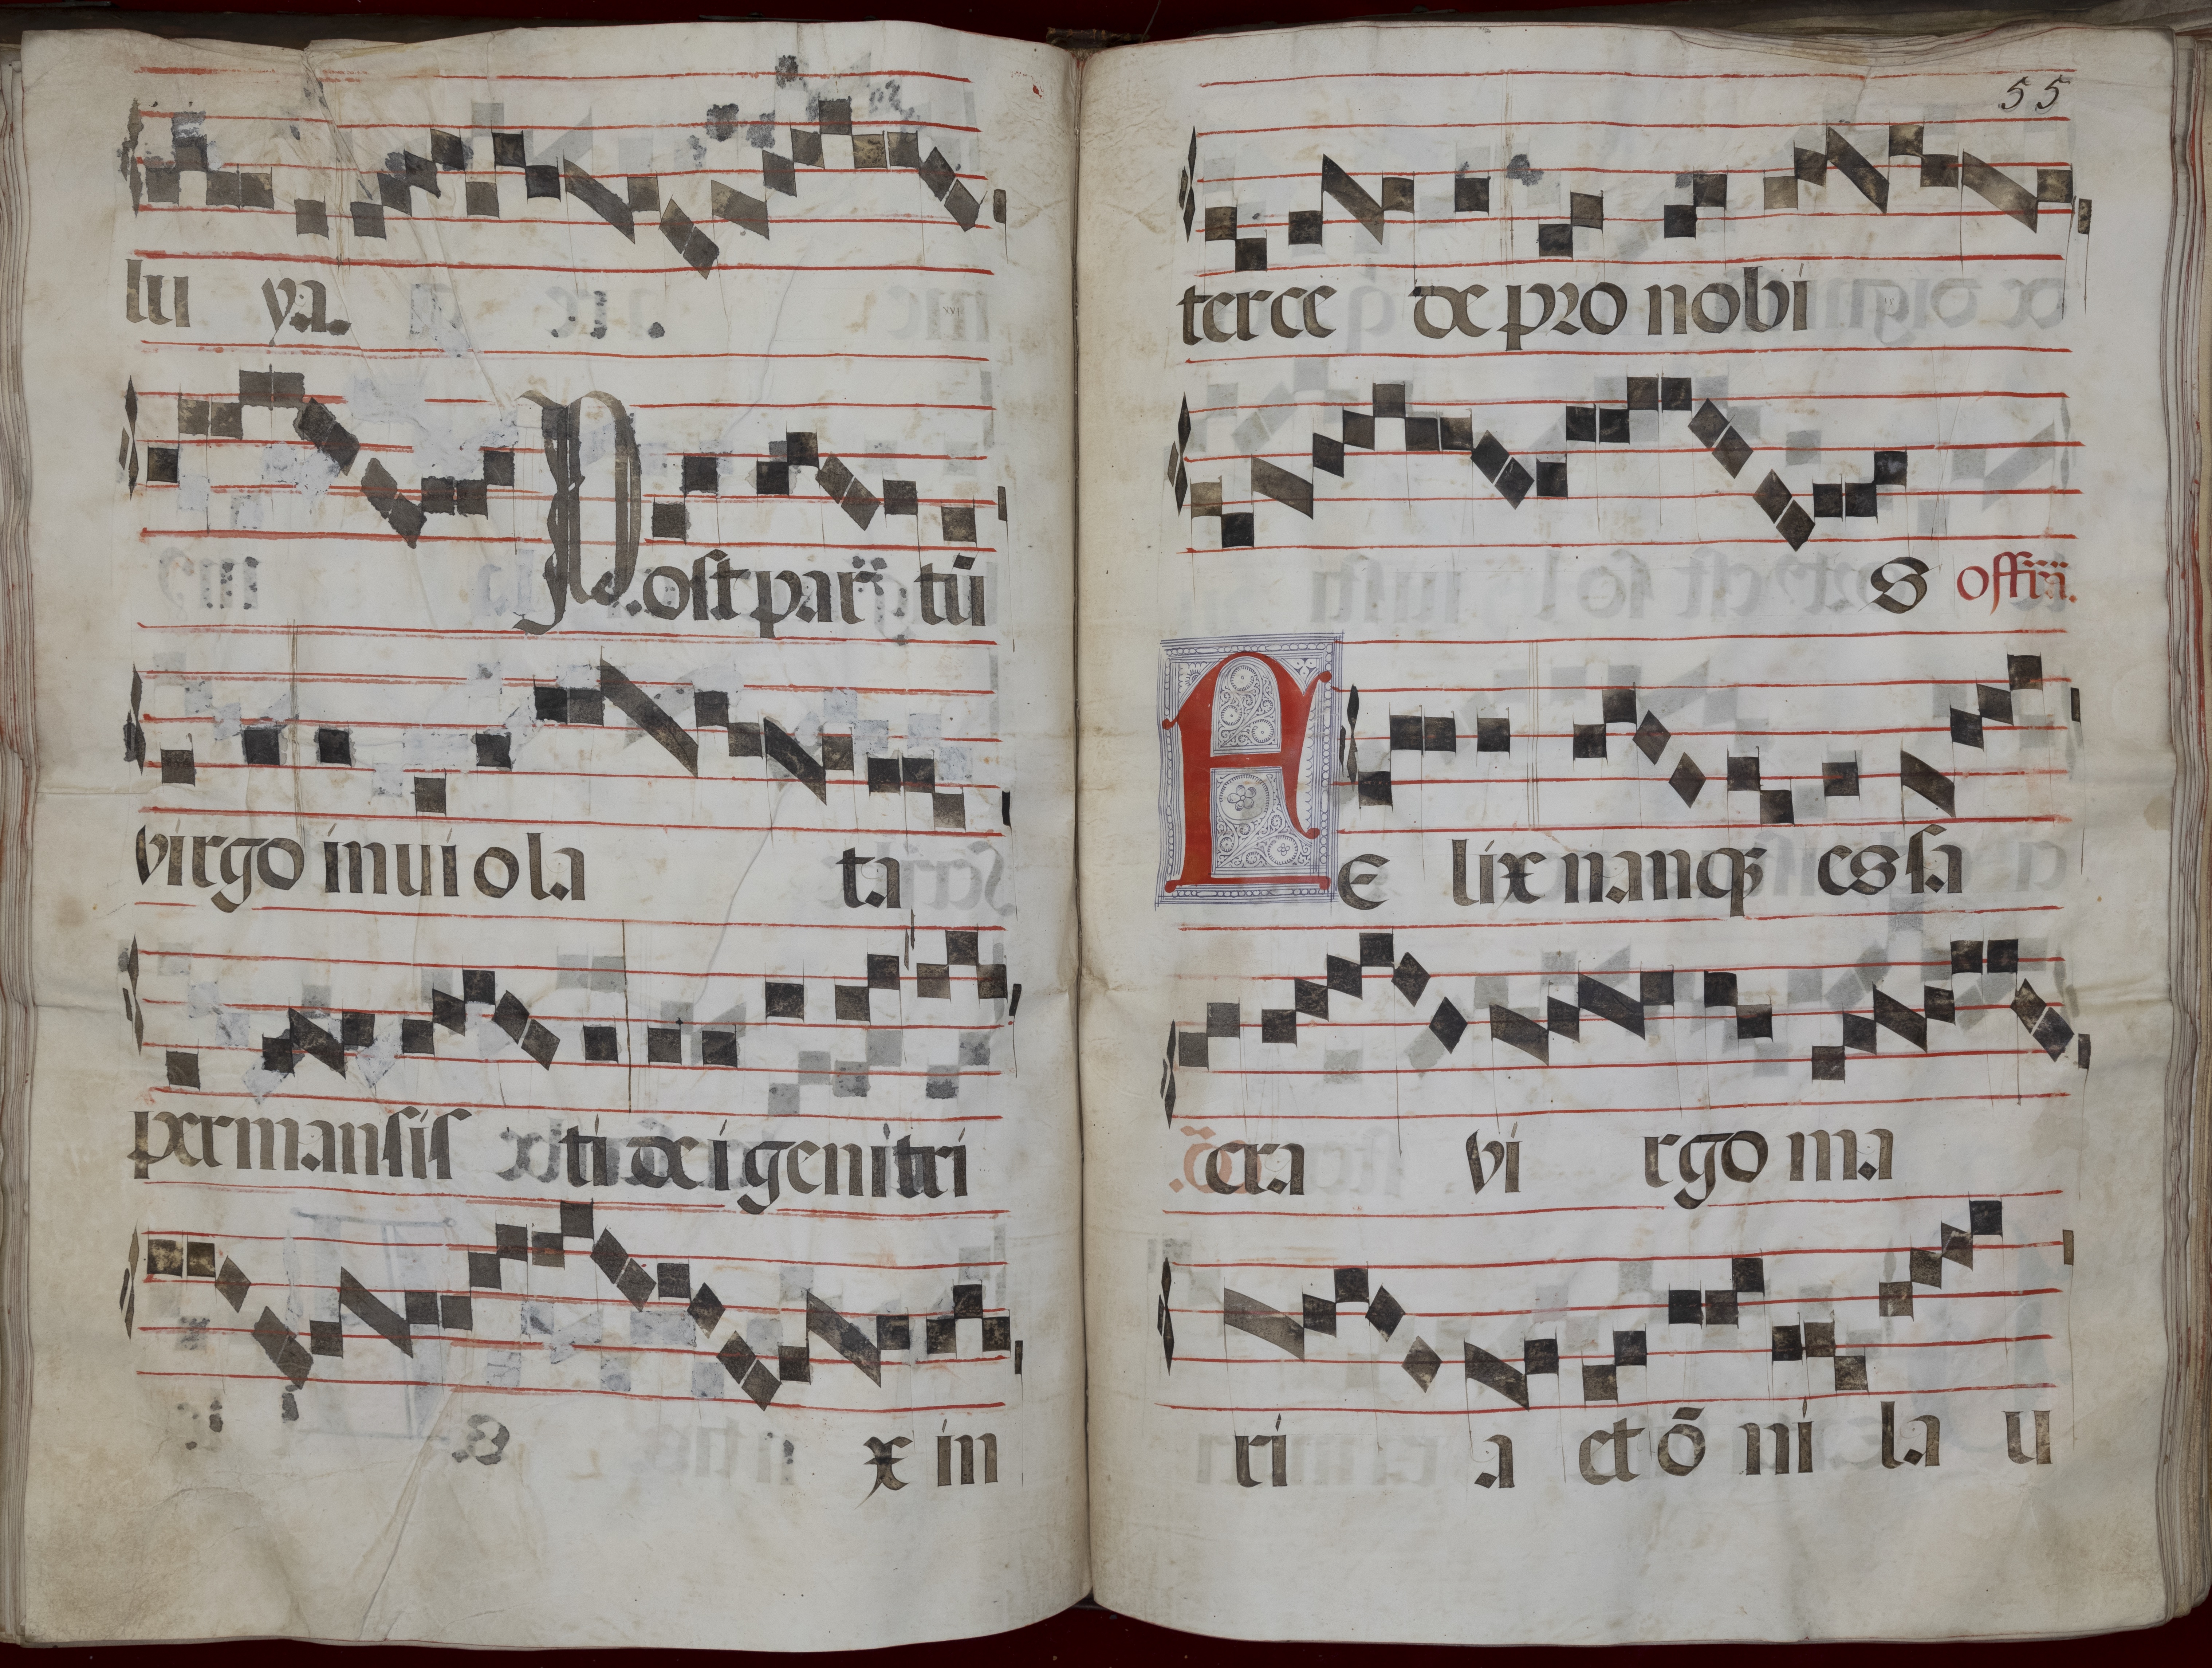 lui ya.
Post partū
virgo inuiola ta
permansisti dei genitri
x in
55
tercede pro nobi
S offm̃.
Fe lix nanq; es sa
cra vi rgo ma
ri a et õ ni la u